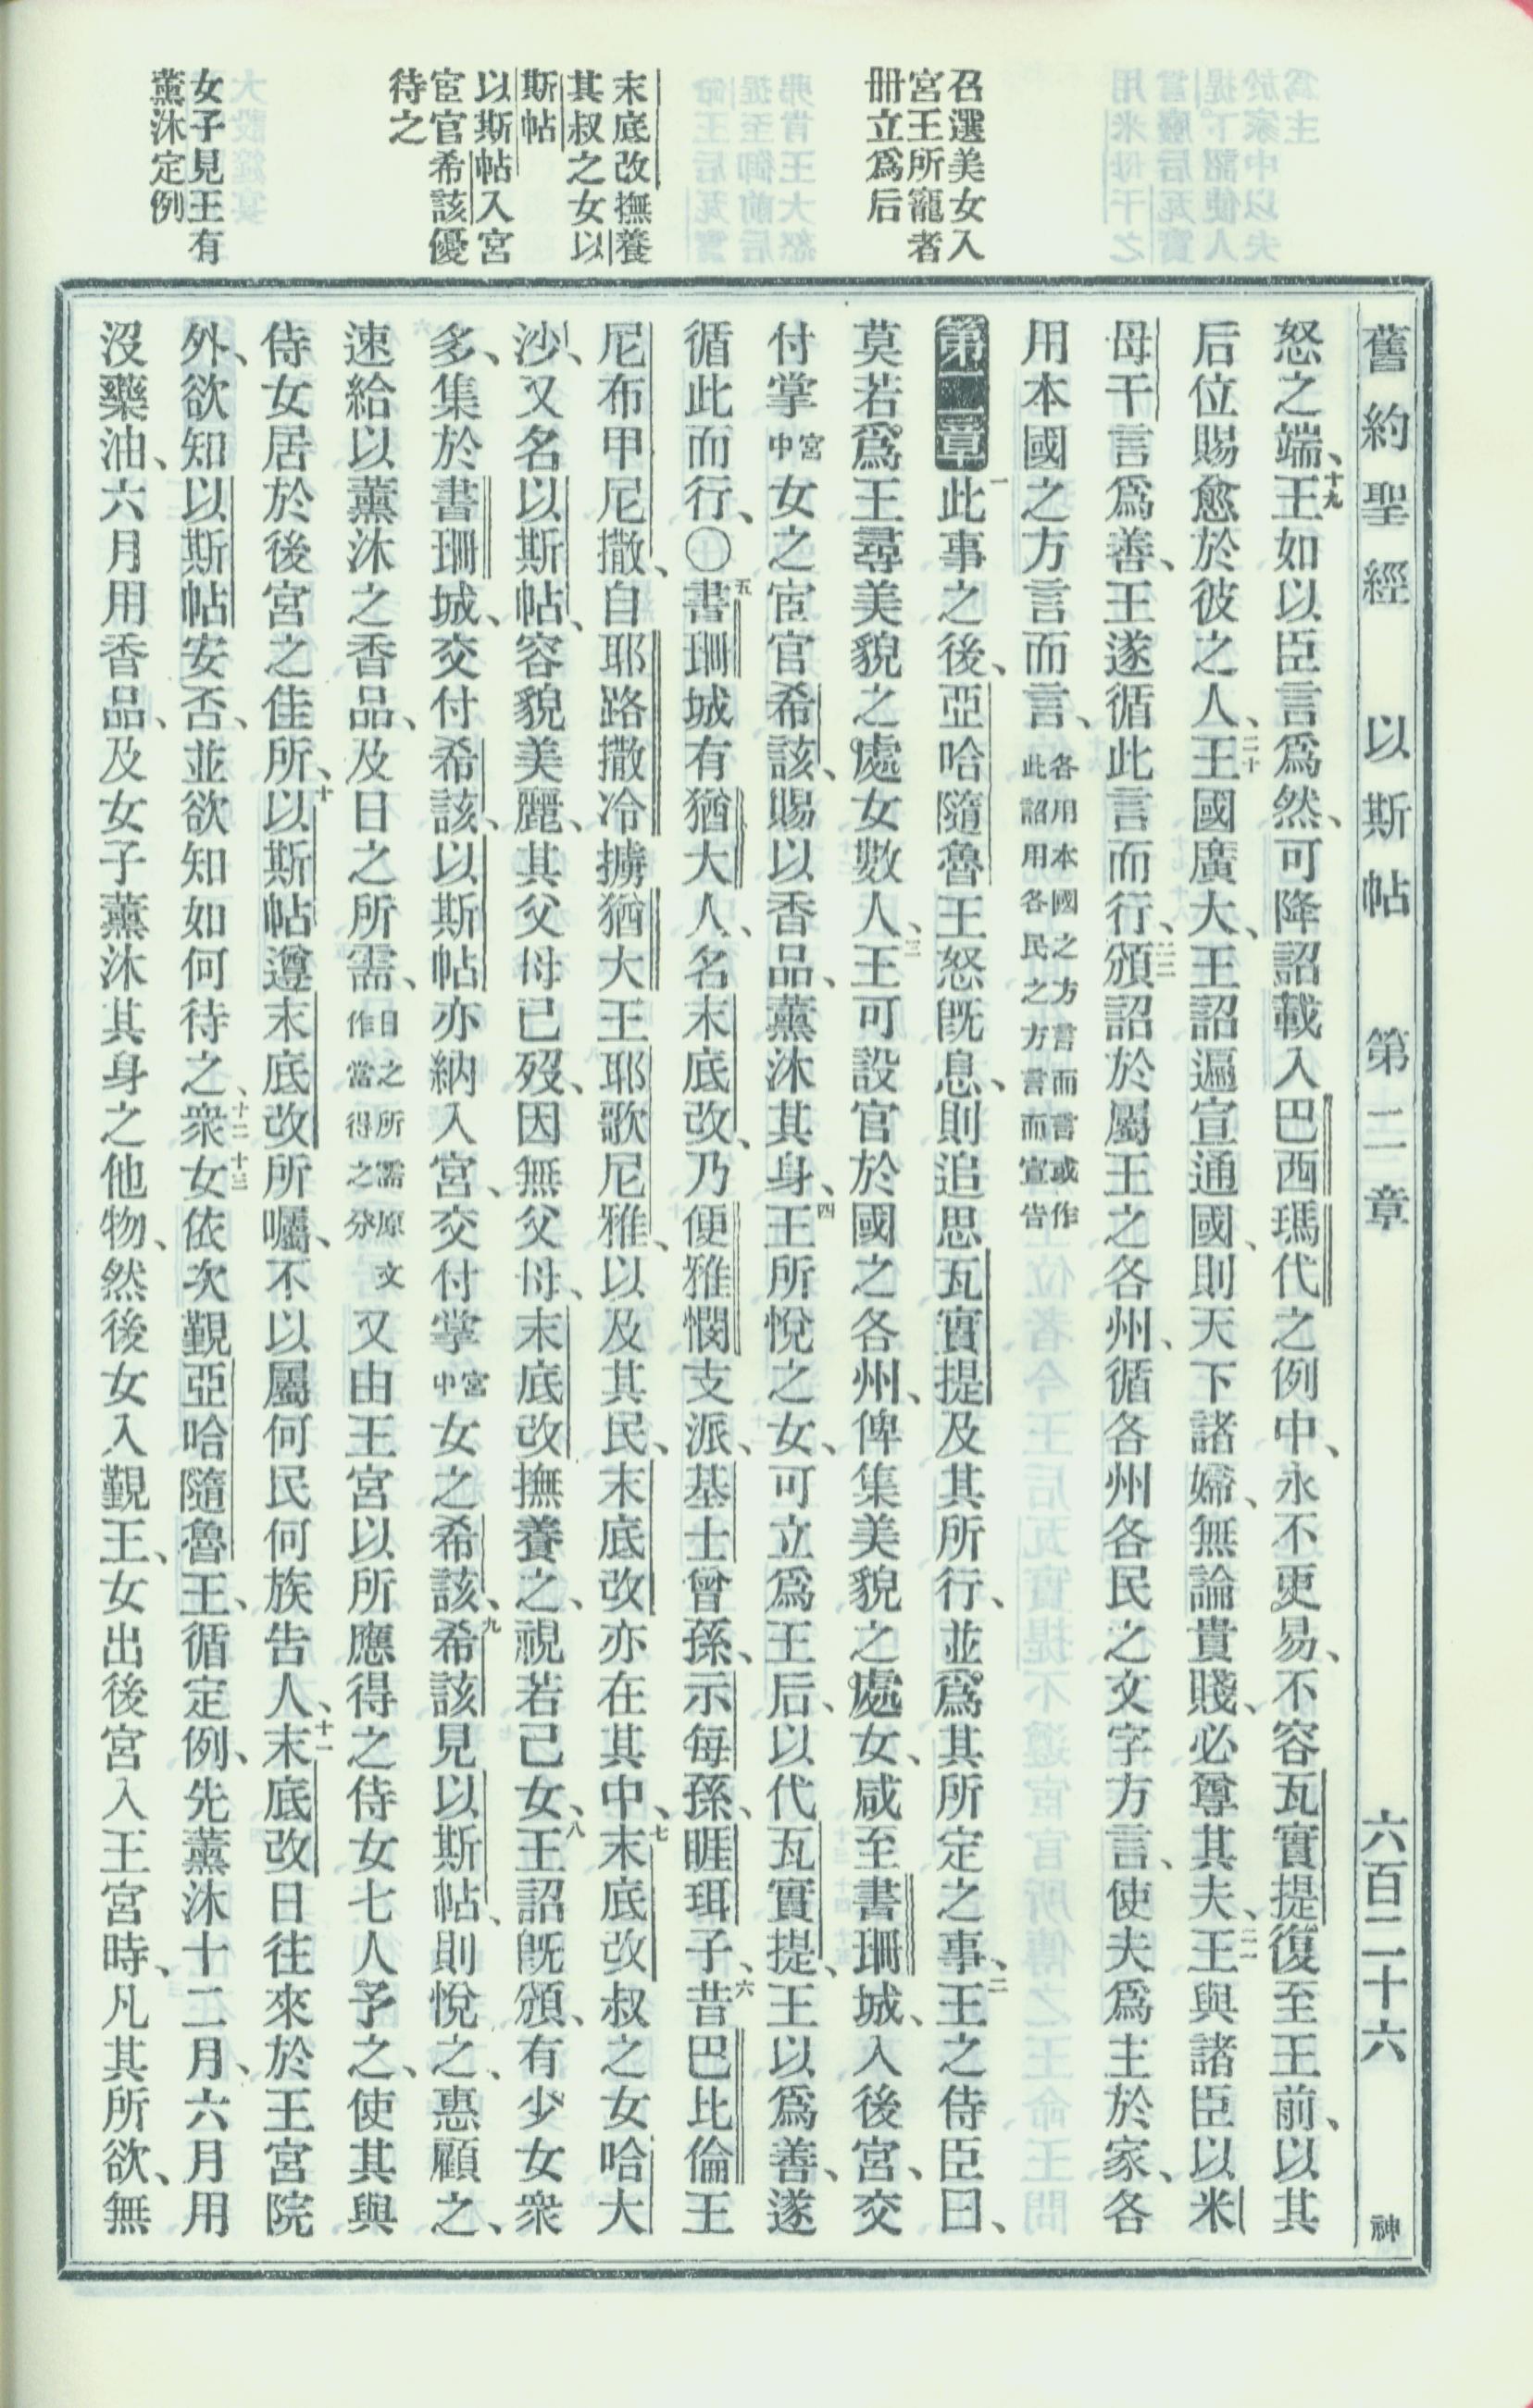 舊約聖經　以斯帖　第二章　六百二十六　神
召選美女入
宮王所寵者
冊立爲后
末底改撫養
其叔之女以
斯帖
以斯帖入宮
宦官希該優
待之
女子見王有
薰沐定例
怒之端、十九王如以臣言爲然、可降詔載入巴西瑪代之例中、永不更易、不容瓦實提復至王前、以其
后位賜愈於彼之人、二十王國廣大、王詔遍宣通國、則天下諸婦、無論貴賤、必尊其夫、二一王與諸臣以米
母干言爲善、王遂循此言而行、二二頒詔於屬王之各州、循各州各民之文字方言、使夫爲主於家、各
用本國之方言而言、各用本國之方言而言或作此詔用各民之方言而宣告
第二章　一此事之後、亞哈隨魯王怒旣息、則追思瓦實提及其所行、並爲其所定之事、二王之侍臣曰、
莫若爲王尋美貌之處女數人、三王可設官於國之各州、俾集美貌之處女、咸至書珊城、入後宮、交
付掌宮中女之宦官希該、賜以香品、薰沐其身、四王所悅之女、可立爲王后、以代瓦實提、王以爲善、遂
循此而行、〇五書珊城有猶大人、名末底改、乃便雅憫支派、基士曾孫、示每孫、睚珥子、六昔巴比倫王
尼布甲尼撒、自耶路撒冷擄猶大王耶歌尼雅、以及其民、末底改亦在其中、七末底改叔之女哈大
沙、又名以斯帖、容貌美麗、其父母已歿、因無父母、末底改撫養之、視若己女、八王詔旣頒、有少女衆
多、集於書珊城、交付希該、以斯帖亦納入宮、交付掌宮中女之希該、九希該見以斯帖、則悅之、惠顧之、
速給以薰沐之香品、及日之所需、日之所需原文作當得之分又由王宮以所應得之侍女七人予之、使其與
侍女居於後宮之佳所、十以斯帖遵末底改所囑、不以屬何民何族告人、十一末底改日往來於王宮院
外、欲知以斯帖安否、並欲知如何待之、十二衆十三女依次覲亞哈隨魯王、循定例、先薰沐十二月、六月用
沒藥油、六月用香品、及女子薰沐其身之他物、然後女入覲王、女出後宮入王宮時、凡其所欲、無